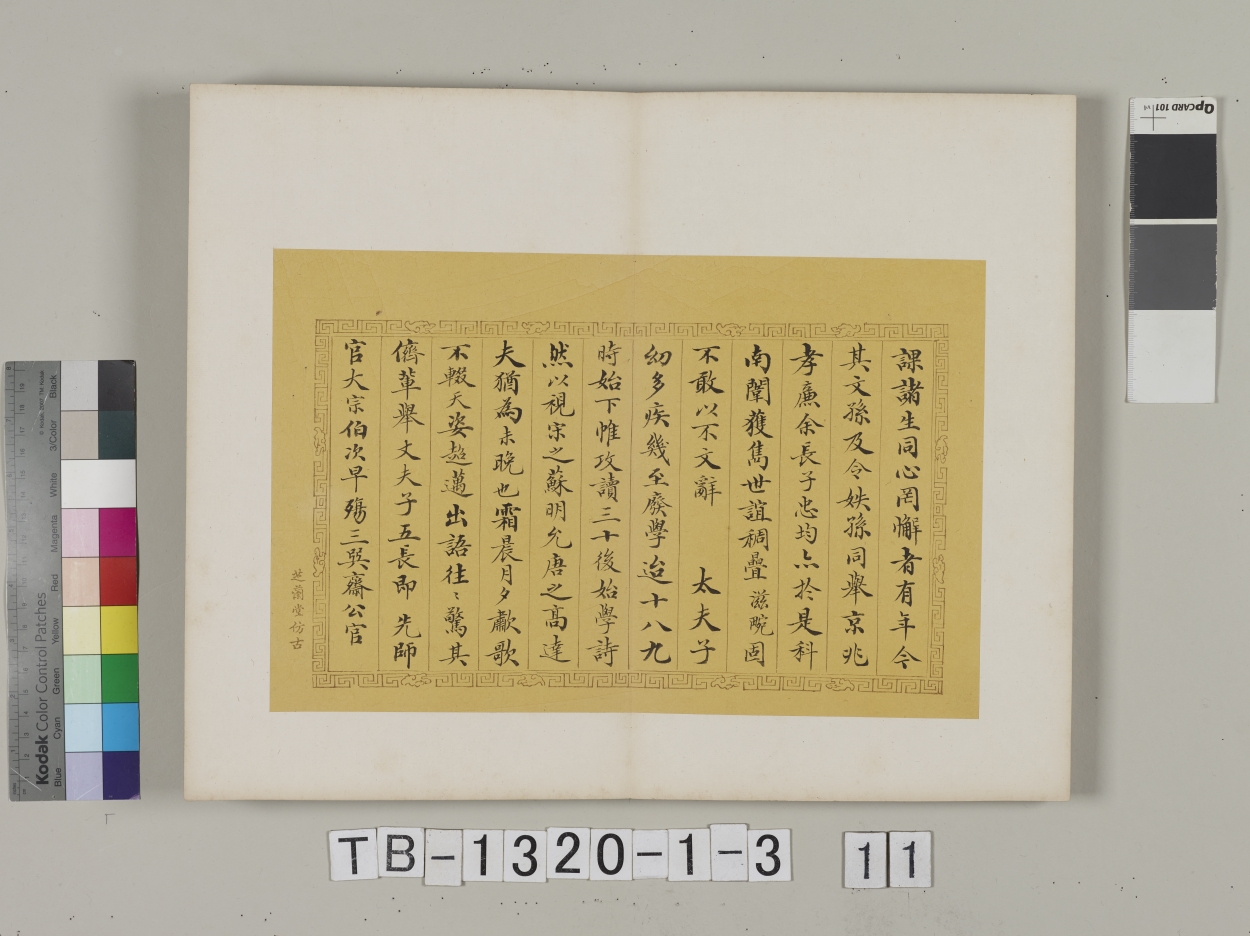 課諸生同心罔懈者有年今
其文孫及令姪孫同舉京兆
孝廉余長子忠均亦於是科
南闈獲雋世誼稠疊滋晼固
不敢以不文辭　太夫子
幼多疾幾至廢學迨十八九
時始下帷攻讀三十後始學詩
然以視宋之蘇明允唐之高達
夫猶為未晚也霜晨月夕歗歌
不輟天姿超邁出語往〻驚其
儕輩舉丈夫子五長即　先師
官大宗伯次早殤三巽齋公官
芝蘭堂仿古
QPCARD 101
v4
Kodak Color Control Patches
© Kodak, 2007 TM: Kodak
Blue
Cyan
Green
Yellow
Red
Magenta
White
3/Color
Black
TB-1320-1-3 11